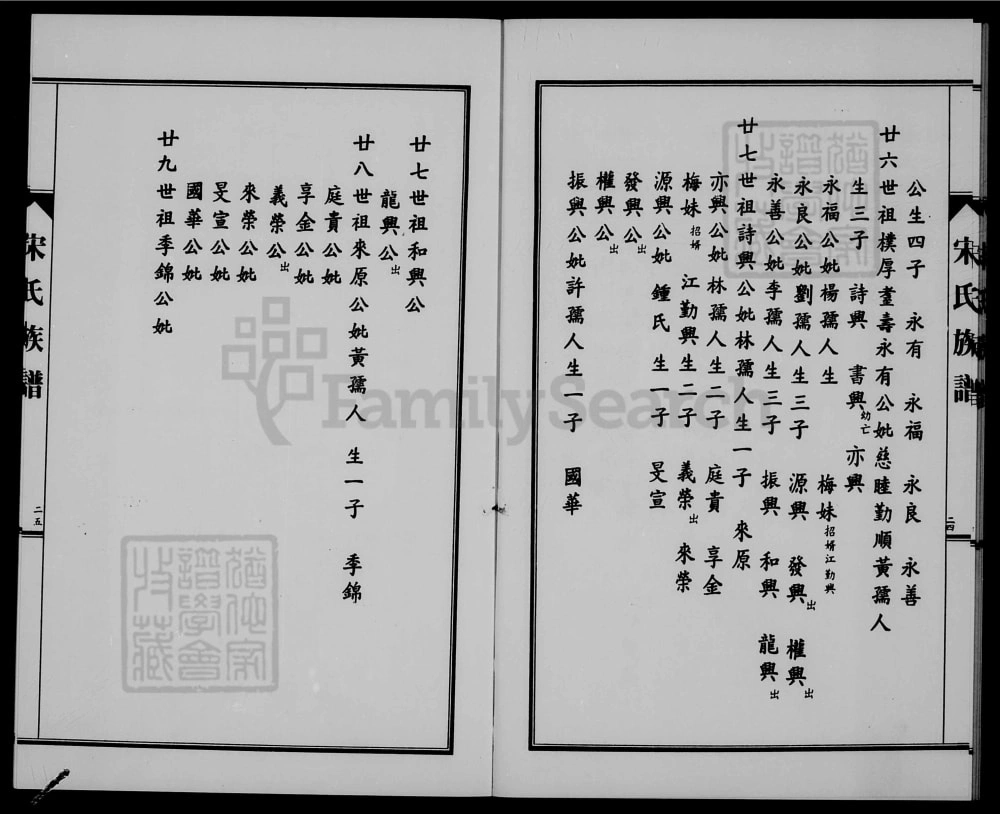 宋氏族譜
二四
公生四子 永有 永福 永良 永善
廿六世祖樸厚耋壽永有公妣慈睦勤順黃孺人
生三子 詩興 書興幼亡 亦興
永福公妣楊孺人生 梅妹招婿江勤興
永良公妣劉孺人生三子 源興 發興出 權興出
永善公妣李孺人生三子 振興 和興 龍興出
廿七世祖詩興公妣林孺人生一子 來原
亦興公妣林孺人生二子 庭貴 享金
梅妹招婿 江勤興生二子 義榮出 來榮
源興公妣 鍾氏 生一子 旻宣
發興公出
權興公出
振興公妣許孺人生一子 國華
廿七世祖和興公
龍興公出
廿八世祖來原公妣黃孺人 生一子 季錦
庭貴公妣
享金公妣
義榮公出
來榮公妣
旻宣公妣
國華公妣
廿九世祖季錦公妣
宋氏族譜
二五
FamilySearch